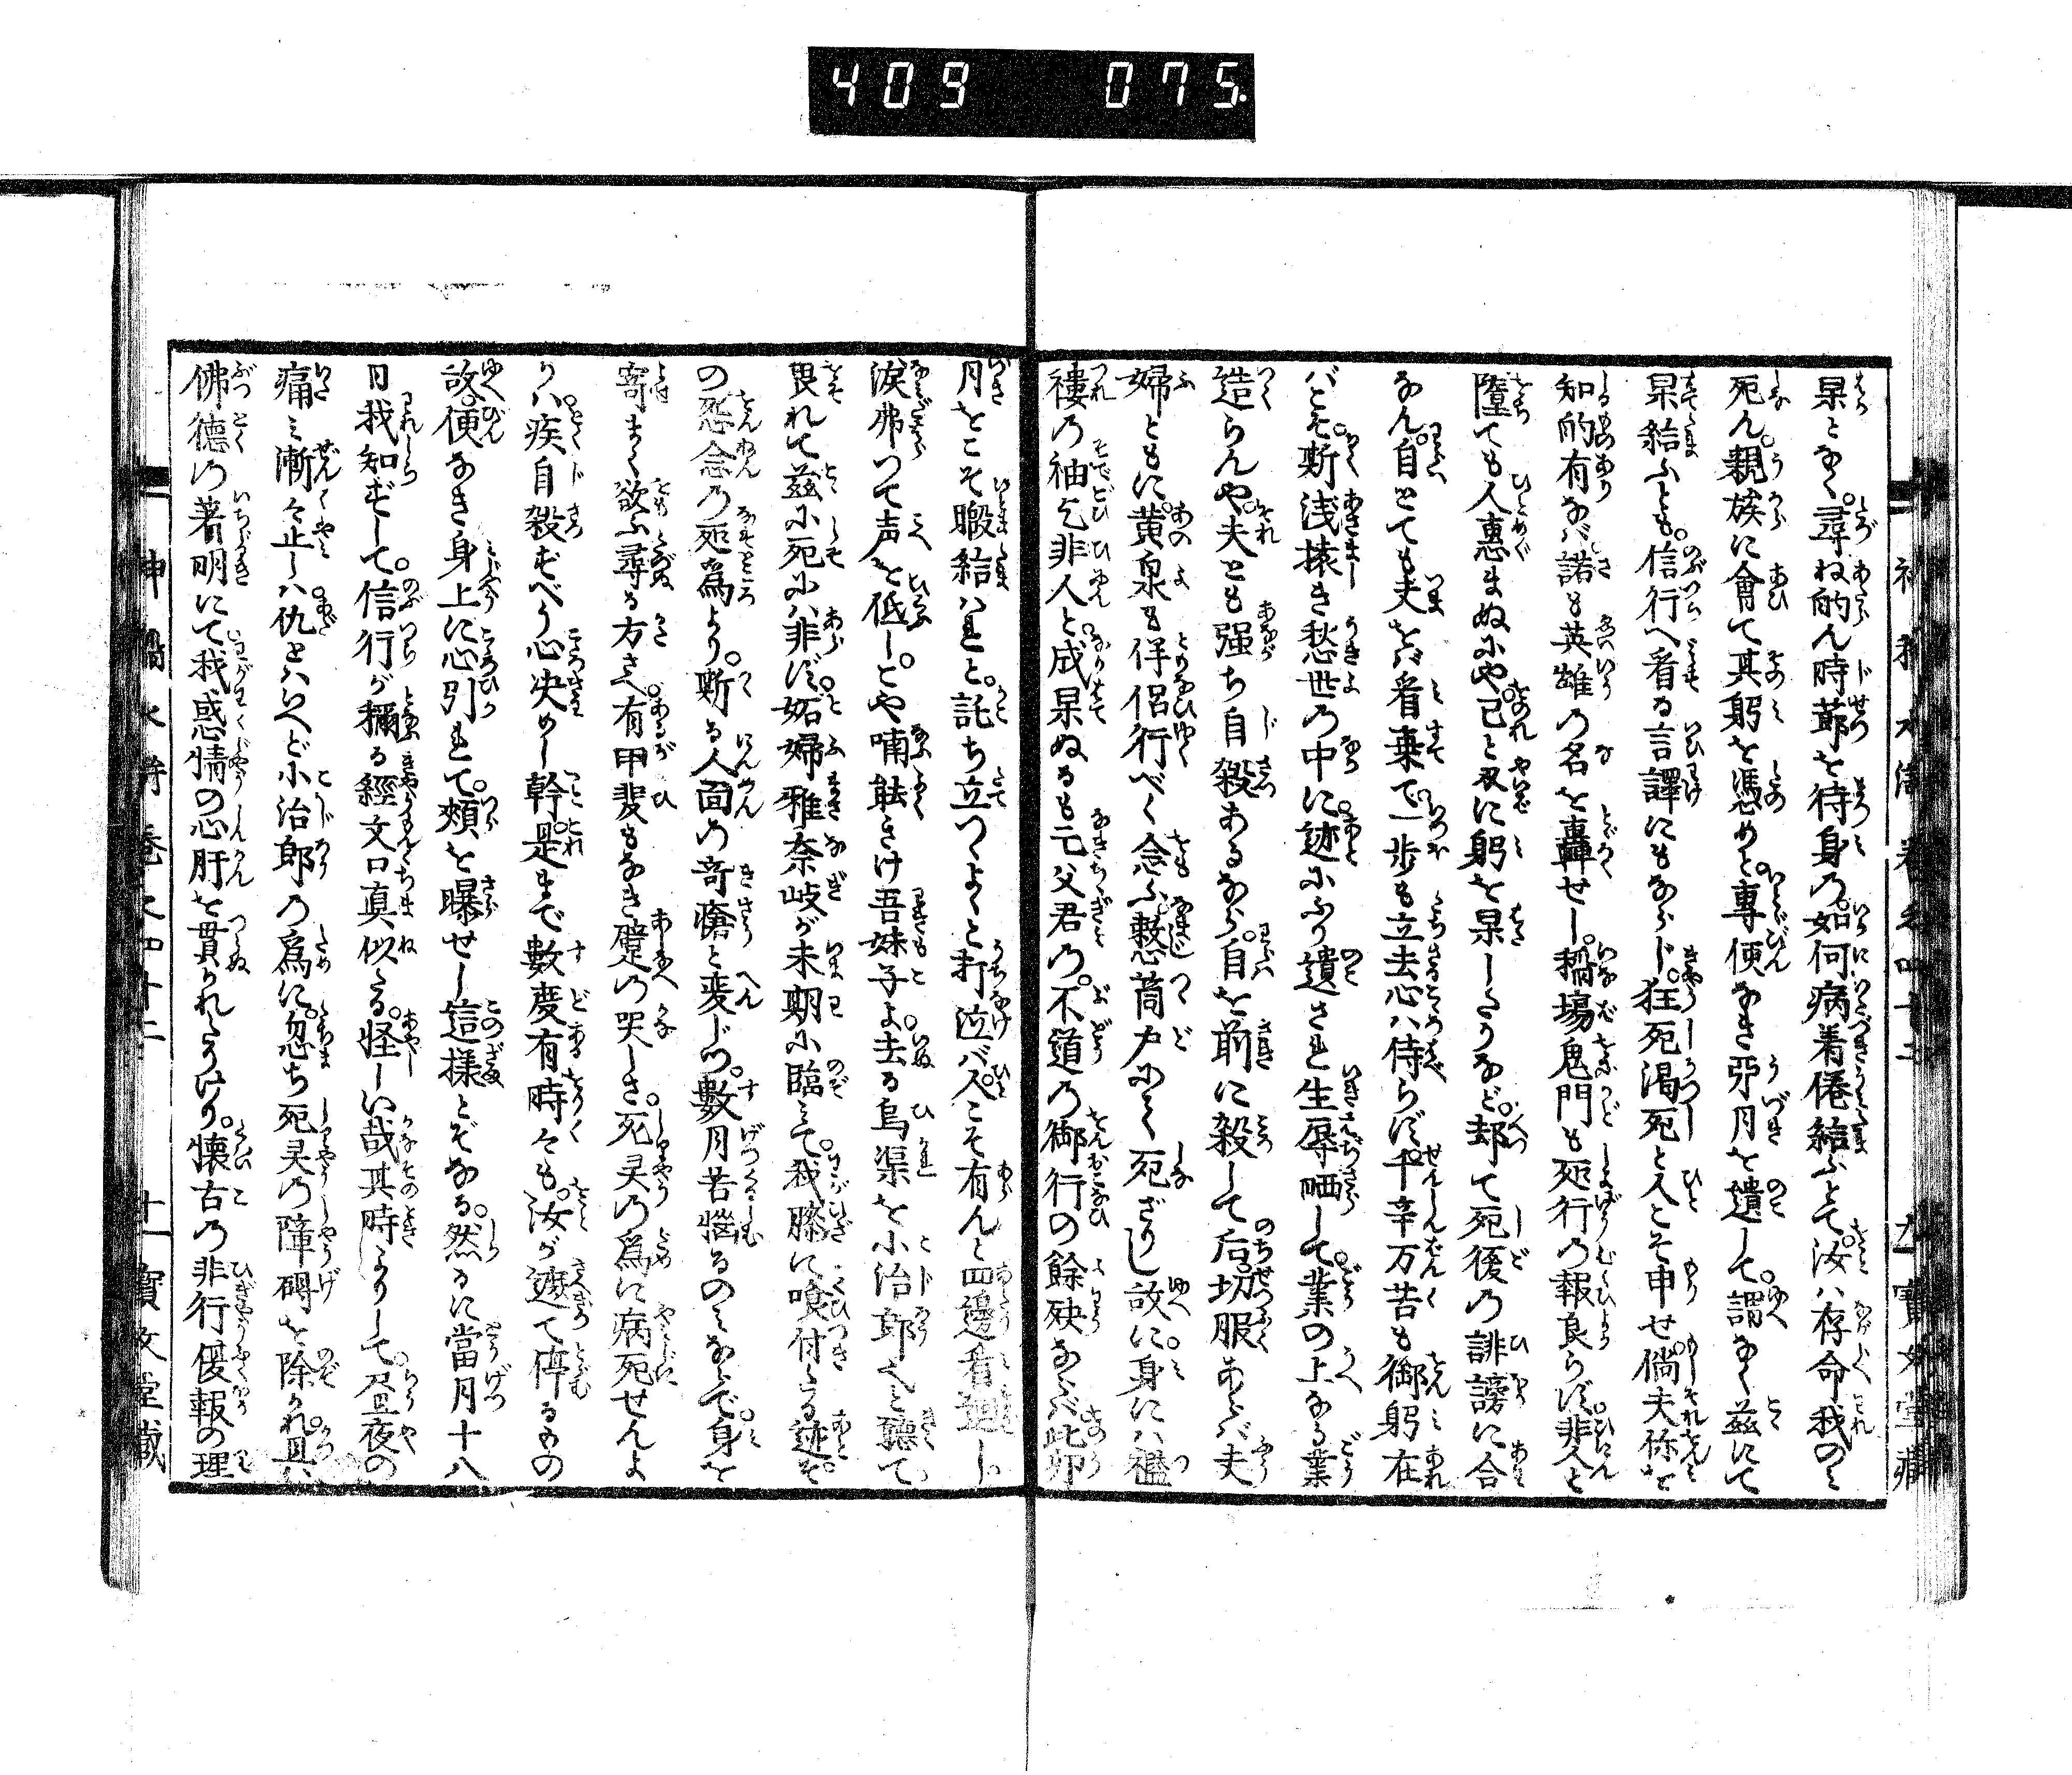 409 075
果となく。尋ね酌ん時節を待身の。如何病着倦給ふとて。汝ハ存命我のミ
死ん。親族に會て其躬を憑めと。専便なき卯月を遺して。謂なく茲にて
果給ふとも。信行へ看る言譯にもならじ。狂死渇死と人こそ申せ。倘夫你を
知的有なバ諾も英雄の名を轟せし。稲場鬼門も死行の報良らず。非人と
墮ても人惠まぬにや。己と刄に躬を果しうなど。却て死後の誹謗に合
なん。自とても夫をバ看棄て。一歩も立去心ハ侍らず。千辛万苦も御躬在
バこそ。斯浅猿き愁世の中に。迹にふり遺され生辱晒して。業の上なる業
造らんや。夫とも強ち自殺あるなら。自を前に殺して后。切服あらバ夫
婦ともに。黄泉も伴侶行べく念ふ。憗筒戸にく死ざりし故に。身にハ襤
褸の袖乞非人と成果ぬるも。元父君の。不道の御行の餘殃ならバ。此卯
月をこそ暇給ハれと。託ち立つよゝと打泣バ。人こそ有んと四邊看廻し
涙弗つて声を低し。とや喃能きけ吾妹子よ。去る烏渠を小治郎くと聽て
畏れて茲に死にハ非ず。妬婦雅奈岐が末期に臨ミて。我膝に喰付たる迹。そ
の怨念の死爲より。斯る人面の奇瘡と変じツ。數月苦惱るのミならで。身を
寄まく欲ふ尋る方さへ。有甲斐もなき躄の哭しさ。死灵の爲に病死せんよ
りハ疾自殺すべう心决めし幹。是まで數度有時々も。汝が遮て停るもの
故。便なき身上に心引れて。頬を曝せし這樣とぞなる。然るに當月十八
日我知ずして。信行が稱る經文口真似たる。怪しい哉其時よりして。昼夜の
痛ミ漸々止しハ仇とハいへど小治郎の爲に。忽ち死灵の障碍を除れ。且ハ
佛德の著明にて我惑情の心肝を貫かれたりけり。懐古の非行偃報の理
神稻水滸 卷之四十二 十一 寶文堂藏